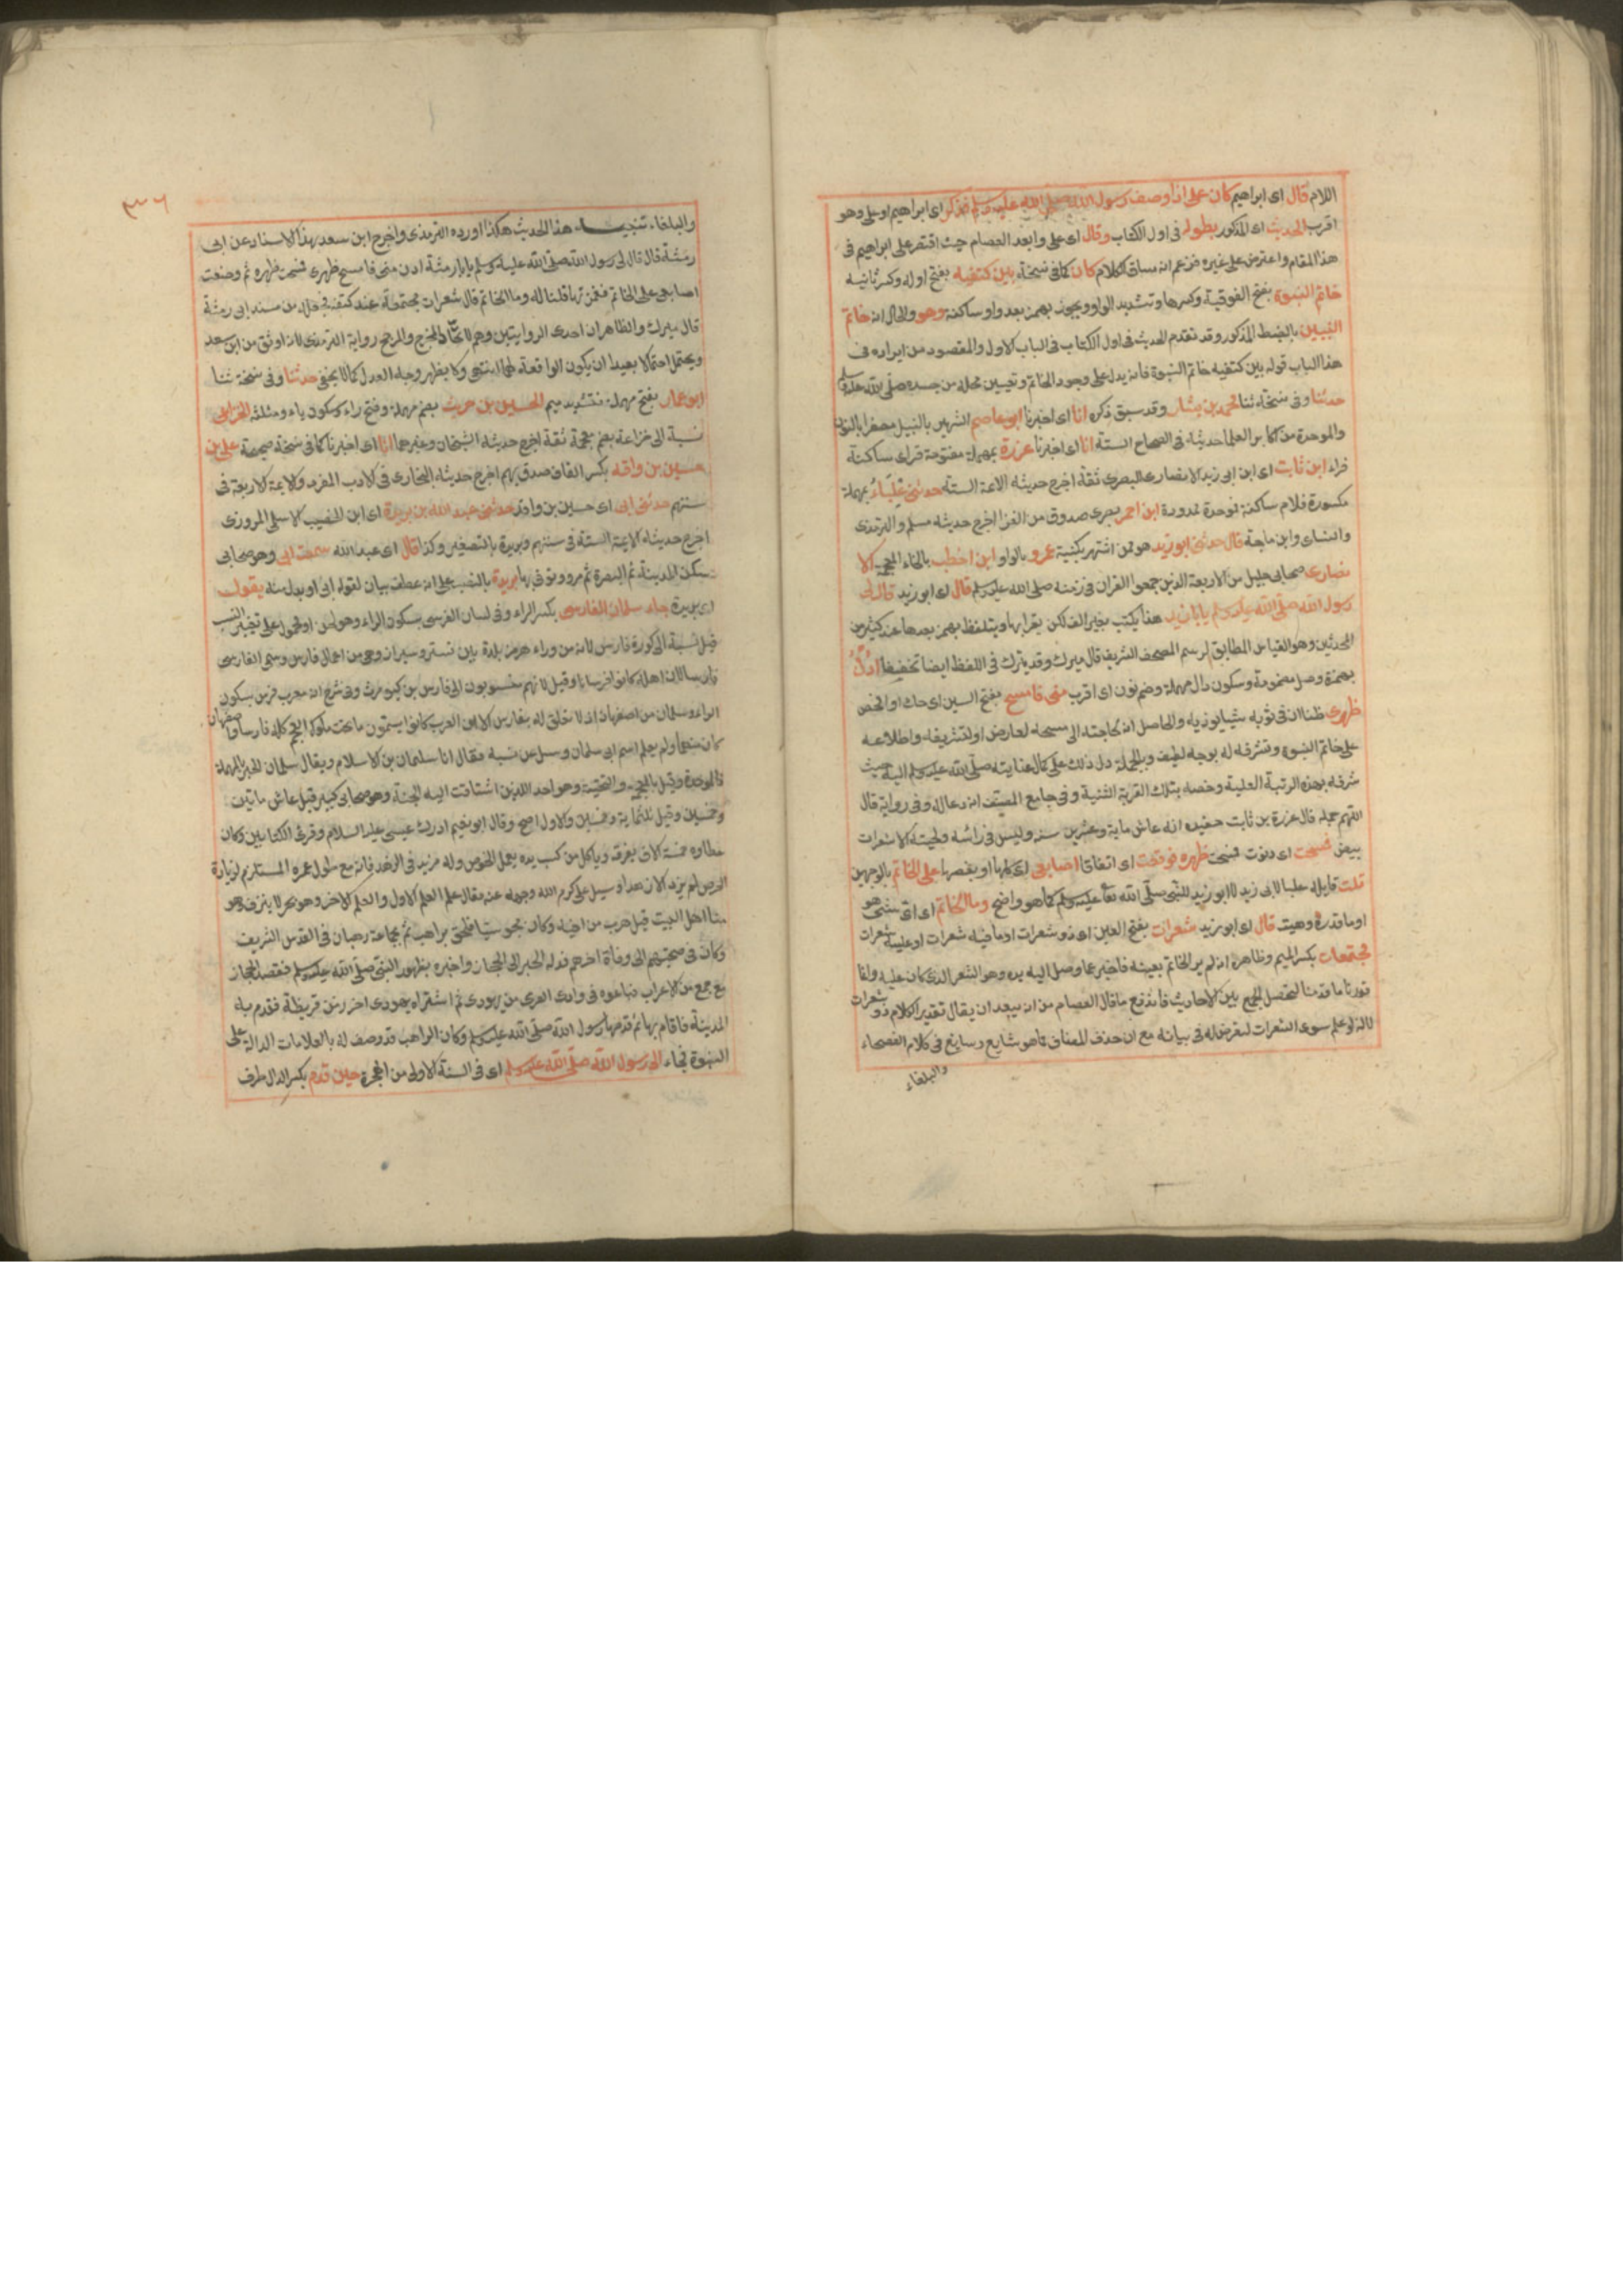 اللام قال اى ابراهيم كان على اذا وصف رسول الله صلى الله عليه وسلم فذكر اى ابراهيم او على وهو
اقرب الحديث اى المذكور بطوله فى اول الكتاب وقال اى على وابعد العصام حيث اقتصر على ابراهيم فى
هذا المقام واعترض على غيره فزعم انه مساق الكلام كان كما فى نسخة بين كتفيه بفتح اوله وكسر ثانيه
خاتم النبوة بفتح الفوقية وكسرها وتشديد الواو ويجوز بهمز بعد واو ساكنة وهو والحال انه خاتم
النبيين بالضبط المذكور وقد تقدم الحديث فى اول الكتاب فى الباب الاول والمقصود من ايراده فى
هذا الباب قوله بين كتفيه خاتم النبوة فانه يدل على وجود الخاتم وتعيين محله من جسده صلى الله عليه وسلم
حدثنا وفى نسخة ثنا محمد بن بشار وقد سبق ذكره انا اى اخبرنا ابو عاصم الشهير بالنبيل مصغرا بالنون
والموحدة من اكابر العلما حديثه فى الصحاح الستة انا اى اخبرنا عزرة بمهملة مفتوحة فزاى ساكنة
فراء ابن ثابت اى ابن ابى زيد الانصارى البصرى ثقة اخرج حديثه الائمة الستة حدثنى علباء بمهملة
مكسورة فلام ساكنة فوحدة ممدودة ابن احمر بصرى صدوق من القرا اخرج حديثه مسلم والترمذى
والنساى وابن ماجة قال حدثنى ابو زيد هو ممن اشتهر بكنيته عمرو بالواو ابن اخطب بالخاء المعجمة الا
نصارى صحابى جليل من الاربعة الذين جمعوا القران فى زمنه صلى الله عليه وسلم قال اى ابو زيد قال لى
رسول الله صلى الله عليه وسلم يابا زيد هذا يكتب بغير الف لكن يقرا بها ويتلفظ بهمز بعدها عند كثير من
المحدثين وهو القياس المطابق لرسم المصحف الشريف قال ميرك وقد يترك فى اللفظ ايضا تخفيفا ادن
بهمزة وصل مضمومة وسكون دال مهملة وضم نون اى اقرب منى فامسح بفتح السين اى حك او الخص
ظهرى ظنا ان فى ثوبه شيا يوذيه والحاصل انه لحاجته الى مسحه لعارض او لتشريفه واطلاعه
على خاتم النبوة وتشرفه له بوجه لطيف وبالجملة دل ذلك على كمال عنايته صلى الله عليه وسلم اليه حيث
شرفه بهذه الرتبة العلية وخصه بتلك القربة السنية وفى جامع المصنف انه دعا له وفى رواية قال
اللهم جمله قال عزرة بن ثابت حفيده انه عاش ماية وعشرين سنة وليس فى راسه ولحيته الا شعرات
بيض فمسحت اى دنوت فمسحت ظهره فوقعت اى اتفاقا اصابعى اى كلها او بعضها على الخاتم بالوجهين
قلت قايله علبا لابى زيد لا ابو زيد للنبى صلى الله تعالى عليه وسلم كما هو واضح وما الخاتم اى اى شى هو
او ما قدره وهيئته قال اى ابو زيد شعرات بفتح العين اى ذو شعرات او ما فيه شعرات او عليه شعرات
مجتمعات بكسر الميم وظاهره انه لم ير الخاتم بعينه فاخبر عما وصل اليه يده وهو الشعر الذى كان عليه وانما
قدرنا ما قدمنا ليحصل الجمع بين الاحاديث فاندفع ما قال العصام من انه يبعد ان يقال تقدير الكلام ذو شعرات
لانه لو علم سوى الشعرات لتعرض له فى بيانه مع ان حذف المضاف مما هو شايع وسايغ فى كلام الفصحاء
والبلغاء
٣٣٦
والبلغاء تنبيه هذا الحديث هكذا اورده الترمذى واخرج ابن سعد بهذا الاسناد عن ابى
رمثة قال قال لى رسول الله صلى الله عليه وسلم يابا رمثة ادن منى فامسح ظهرى فمسحت ظهره ثم وضعت
اصابعى على الخاتم فغمزتها قلنا له وما الخاتم قال شعرات مجتمعة عند كتفه من مسند ابى رمثة
قال ميرك والظاهر ان احدى الروايتين وهم لاتحاد المخرج والمرجح رواية الترمذى لانه اوثق من ابن سعد
ويحتمل احتمالا بعيدا ان يكون الواقعة لهما انتهى ولا يظهر وجه العدل كما لا يخفى حدثنا وفى نسخة ثنا
ابو عمار بفتح مهملة فتشديد ميم الحسين بن حريث بضم مهملة وفتح راء وسكون ياء ومثلثة الخزاعى
نسبة الى خزاعة بضم معجمة ثقة اخرج حديثه الشيخان وغيرهما انا اى اخبرنا كما فى نسخة صحيحة على بن
حسين بن واقد بكسر القاف صدوق يهم اخرج حديثه البخارى فى الادب المفرد والائمة الاربعة فى
سننهم حدثنى ابى اى حسين بن واقد حدثنى عبد الله بن بريدة اى ابن الحصيب الاسلمى المروزى
اخرج حديثه الائمة الستة فى سننهم وبريدة بالتصغير وكذا قال اى عبد الله سمعت ابى وهو صحابى
سكن المدينة ثم البصرة ثم مرو وتوفى بها بريدة بالنصب على انه عطف بيان لقوله ابى او بدل منه يقول
اى بريدة جاء سلمان الفارسى بكسر الراء وفى لسان الفرس بسكون الراء وهو لحن او محمول على تغيير النسب
قيل نسبة الى كورة فارس لانه من وراء هرمز بلدة بين تستر وشيراز وهى من اعمال فارس وسمى الفارسى
فارسا لان اهله كانوا فرسانا وقيل لانهم منسوبون الى فارس بن كيومرث وفى شرح انه معرب فرس بسكون
الراء وسلمان من اصفهان اذ لا تعلق له بفارس الا ان العرب كانوا يسمون ما تحت ملوك العجم كله فارسا واصفهان
كان منها ولم يعلم اسم ابى سلمان وسئل عن نسبه فقال انا سلمان بن الاسلام ويقال سلمان الخير بالمهملة
فالموحدة وقيل بالمعجمة والتحتية وهو احد الذين اشتاقت اليه الجنة وهو صحابى كبير قيل عاش مايتين
وخمسين وقيل ثلثماية وخمسين والاول اصح وقال ابو نعيم ادرك عيسى عليه السلام وقرئ الكتابين وكان
عطاوه خمسة الاف يفرقه وياكل من كسب يده يعمل الخوص وله مزيد فى الزهد فانه مع طول عمره المستلزم لزيادة
الحرص لم يزد الا زهدا وسئل على كرم الله وجهه عنه فقال علم العلم الاول والعلم الاخر وهو بحر لا ينزف وهو
منا اهل البيت قيل هرب من اخيه وكان مجوسيا فلحق براهب ثم بجماعة رهبان فى القدس الشريف
وكان فى صحبتهم الى وفاة اخرهم فدله الحبر الى الحجاز واخبره بظهور النبى صلى الله عليه وسلم فقصد الحجاز
مع جمع من الاعراب فباعوه فى وادى القرى من يهودى ثم اشتراه يهودى اخر من قريظة فقدم به
المدينة فاقام بها ثم قدمها رسول الله صلى الله عليه وسلم وكان الراهب قد وصف له بالعلامات الدالة على
النبوة فجاء الى رسول الله صلى الله عليه وسلم اى فى السنة الاولى من الهجرة حين قدم بكسر الدال ظرف